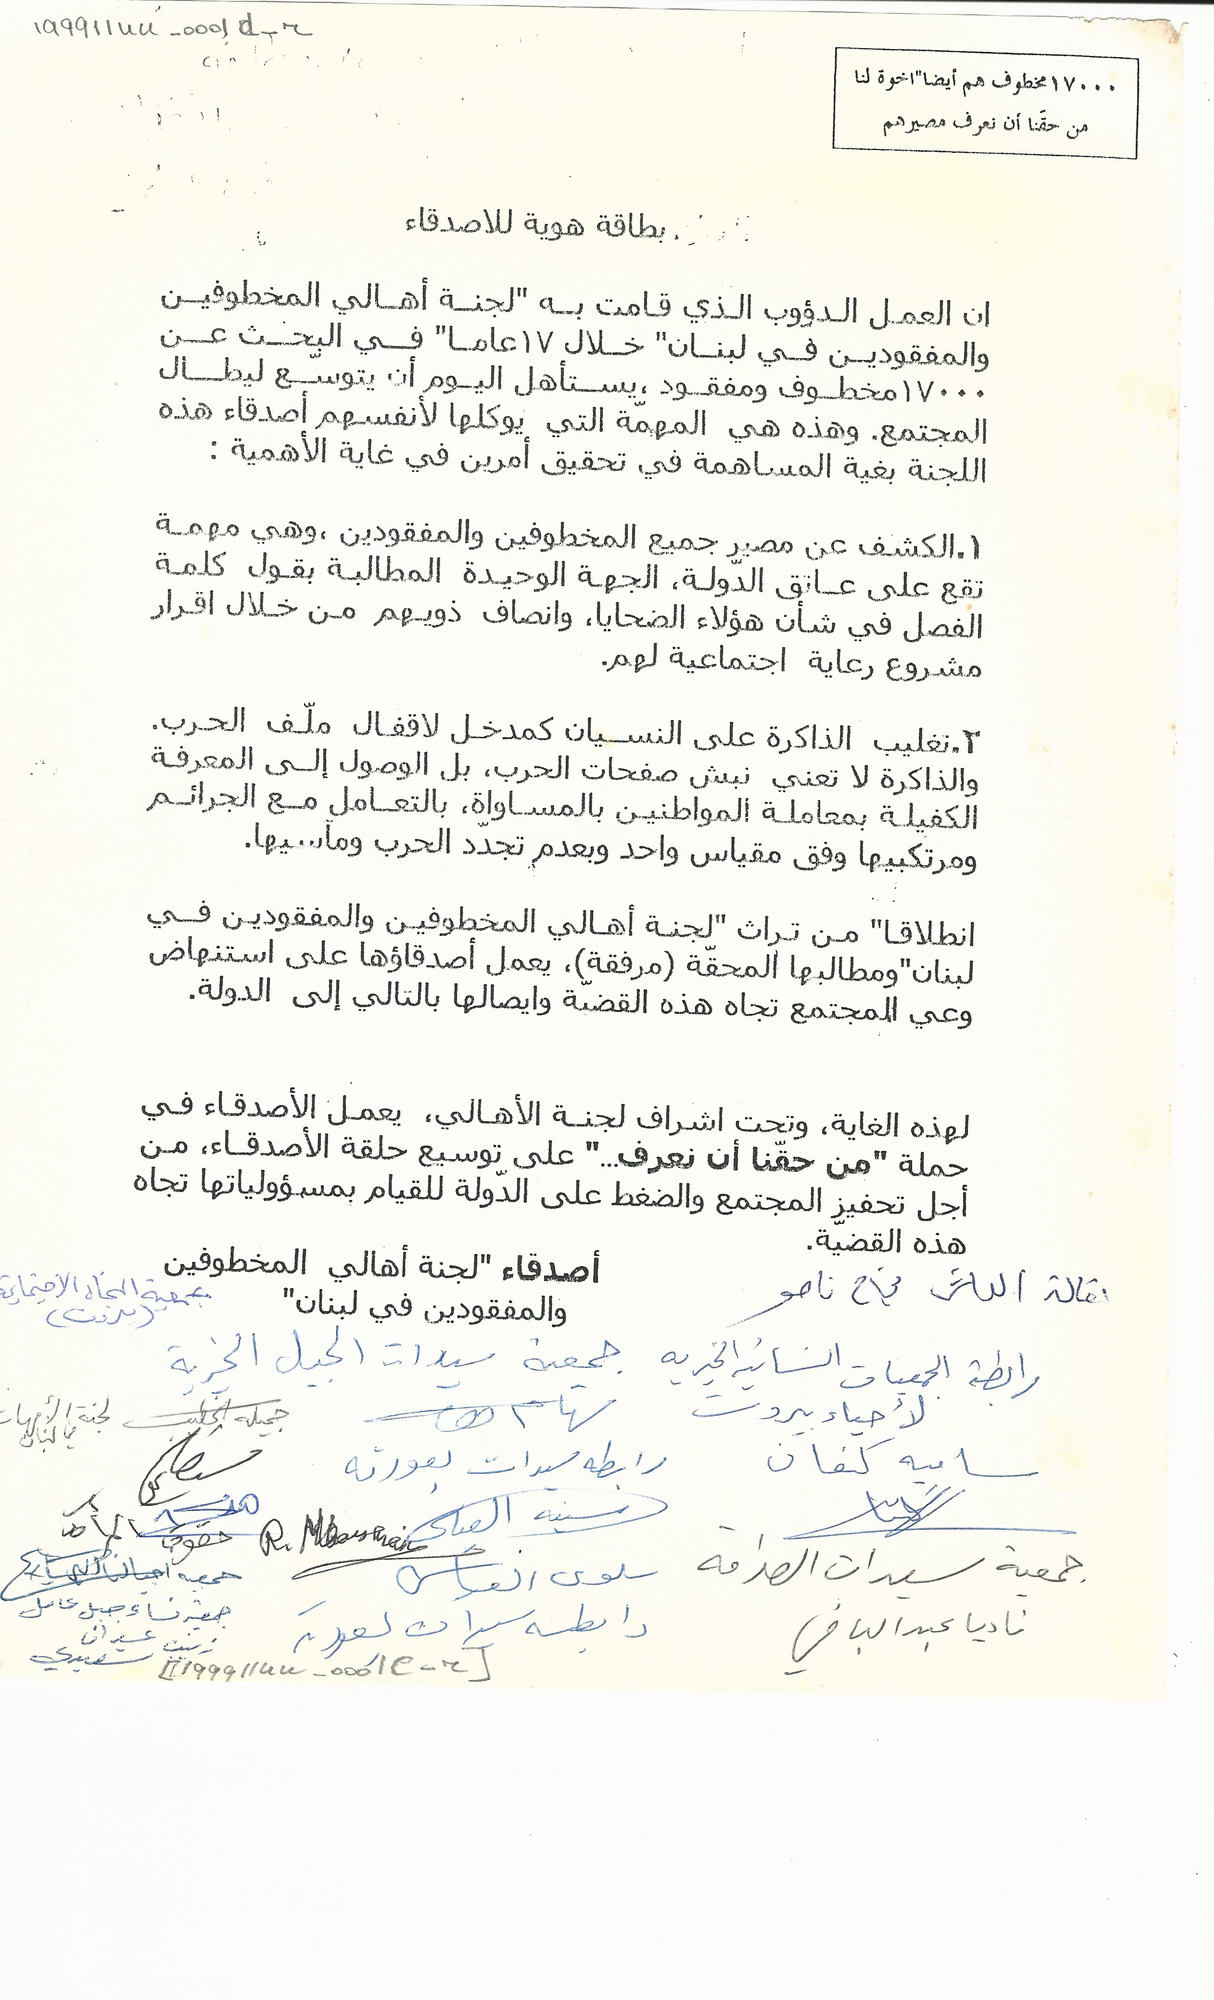 ١٧٠٠٠مخطوف هم أيضا"اخوة لنا
من حقّنا أن نعرف مصيرهم
بطاقة هوية للاصدقاء
ان العمل الدؤوب الذي قامت به "لجنة أهالي المخطوفين
والمفقودين في لبنان" خلال ١٧عاما" في البحث عن
١٧٠٠٠مخطوف ومفقود ،يستأهل اليوم أن يتوسّع ليطال
المجتمع. وهذه هي المهمّة التي يوكلها لأنفسهم أصدقاء هذه
اللجنة بغية المساهمة في تحقيق أمرين في غاية الأهمية :
١.الكشف عن مصير جميع المخطوفين والمفقودين ،وهي مهمة
تقع على عاتق الدّولة، الجهة الوحيدة المطالبة بقول كلمة
الفصل في شأن هؤلاء الضحايا، وانصاف ذويهم من خلال اقرار
مشروع رعاية اجتماعية لهم.
٢.تغليب الذاكرة على النسيان كمدخل لاقفال ملّف الحرب.
والذاكرة لا تعني نبش صفحات الحرب، بل الوصول إلى المعرفة
الكفيلة بمعاملة المواطنين بالمساواة، بالتعامل مع الجرائم
ومرتكبيها وفق مقياس واحد وبعدم تجدّد الحرب ومآسيها.
انطلاقا" من تراث "لجنة أهالي المخطوفين والمفقودين في
لبنان"ومطالبها المحقّة (مرفقة)، يعمل أصدقاؤها على استنهاض
وعي المجتمع تجاه هذه القضيّة وايصالها بالتالي إلى الدولة.
لهذه الغاية، وتحت اشراف لجنة الأهالي، يعمل الأصدقاء في
حملة "من حقّنا أن نعرف..." على توسيع حلقة الأصدقاء، من
أجل تحفيز المجتمع والضغط على الدّولة للقيام بمسؤولياتها تجاه
هذه القضيّة.
أصدقاء "لجنة أهالي المخطوفين
والمفقودين في لبنان"
جمعية النجاة الاجتماعية
رابطة الجمعيات النسائية الخيرية جمعية سيدات الجبل الخيرية
لأحياء بيروت سهام
جميلة الخطيب لجنة الأمهات
سامية كنفان رابطة سيدات بعورته
سنية
حقوق المرأة
جمعية سيدات الصداقة سلوى
جمعية نساء جبل عامل
ناديا عبد الباقي رابطة سيدات بعورتة
زينب سعيدي